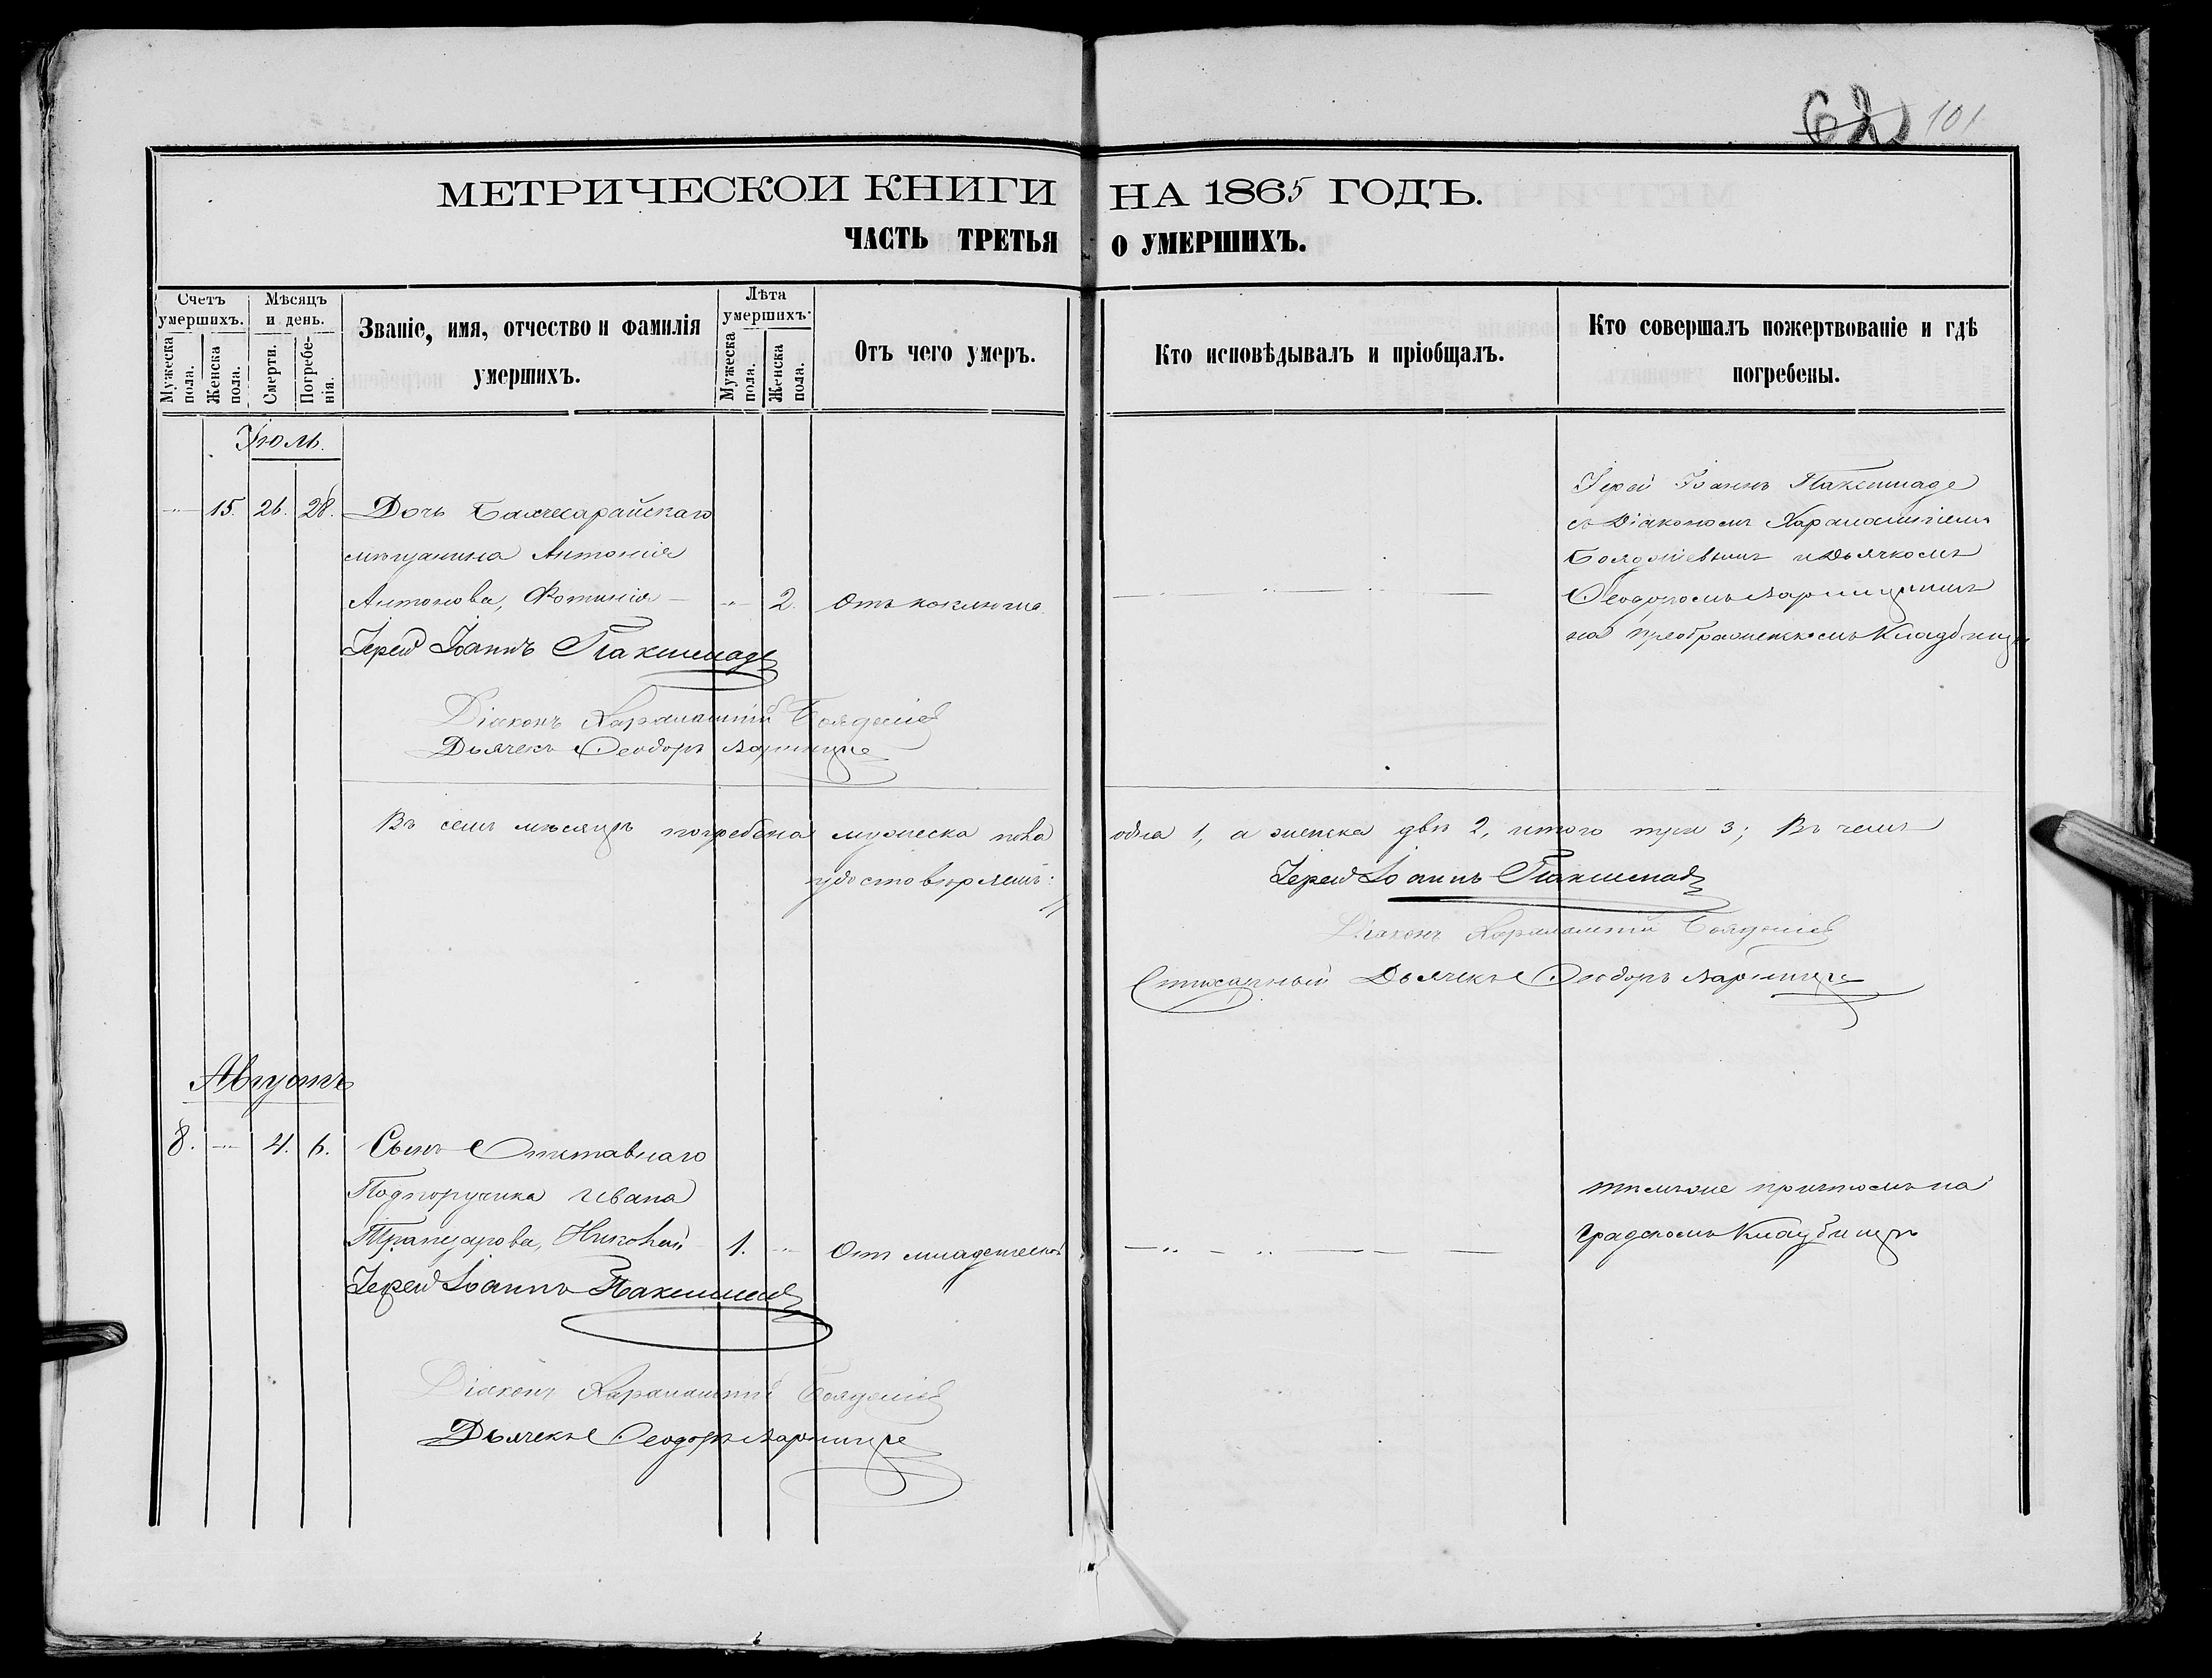 62 101
МЕТРИЧЕСКОИ КНИГИ НА 1865 ГОДЪ.
ЧАСТЬ ТРЕТЬЯ О УМЕРШИХЪ.
Счетъ умершихъ.
Мужеска пола.
Женска пола.
Мѣсяцъ и день.
Смерти.
Погребенія.
Званіе, имя, отчество и фамилія
умершихъ.
Лѣта умершихъ.
Мужеска пола.
Женска пола.
Отъ чего умеръ.
Кто исповѣдывалъ и пріобщалъ.
Кто совершалъ пожертвованіе и гдѣ
погребены.
Іюль.
15. 26. 28. Дочь Бахчисарайскаго
мѣщанина Антонія
Антонова, Фотинія 2. Отъ коклюша
Іерей Іоаннъ
Діаконъ Харалампій
Дьячекъ Ѳеодоръ
Іерей Іоаннъ
съ Діакономъ Харалампіемъ
и Дьячкомъ
Ѳеодоромъ
на Преображенскомъ Кладбищѣ
Въ семъ мѣсяцѣ погребено мужеска пола одна 1, а женска двѣ 2, итого три 3; Въ чемъ
удостовѣряемъ:
Іерей Іоаннъ
Діаконъ Харалампій
Стихарный Дьячекъ Ѳеодоръ
Августъ
8. 4. 6. Сынъ Отставнаго
Подпоручика Ивана
Николай 1. Отъ младенческой
Іерей Іоаннъ
Діаконъ Харалампій
Дьячекъ Ѳеодоръ
тѣмъ же причтомъ на
градскомъ Кладбищѣ